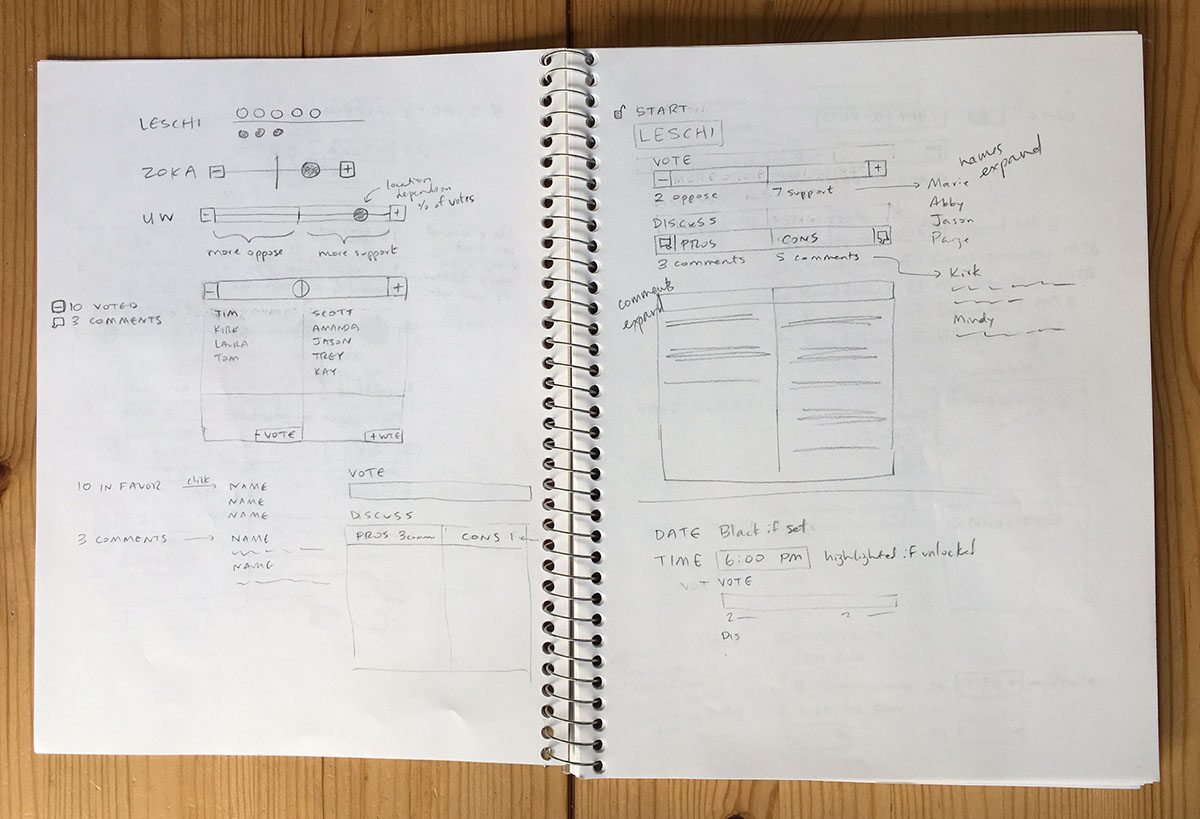 LESCHI
ZOKA
location
dependent
% of votes
UW
more oppose more support
10 VOTED
3 COMMENTS
JIM SCOTT
KIRK AMANDA
LAURA JASON
TOM TREY
KAY
- VOTE + VOTE
10 IN FAVOR click NAME
NAME
NAME
3 COMMENTS NAME
NAME
VOTE
DISCUSS
PROS 3 comm CONS 1 c
START
LESCHI
VOTE
2 oppose 7 support
names
expand
Marie
Abby
Jason
Paige
DISCUSS
PROS CONS
3 comments 5 comments
Kirk
Mindy
comments
expand
DATE Black if set
TIME 6:00 PM highlighted if unlocked
VOT VOTE
2
Dis